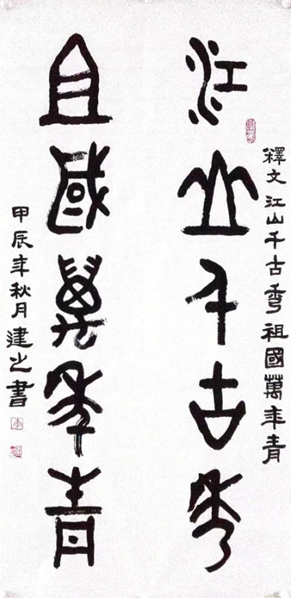 釋文 江山千古秀 祖國萬年青
江山千古秀
且國萬年青
甲辰年秋月建之書